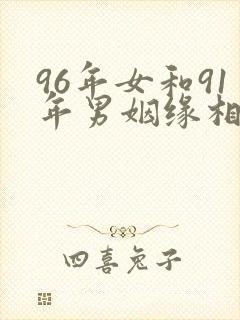 96年女和91
年男姻缘相
四喜兔子